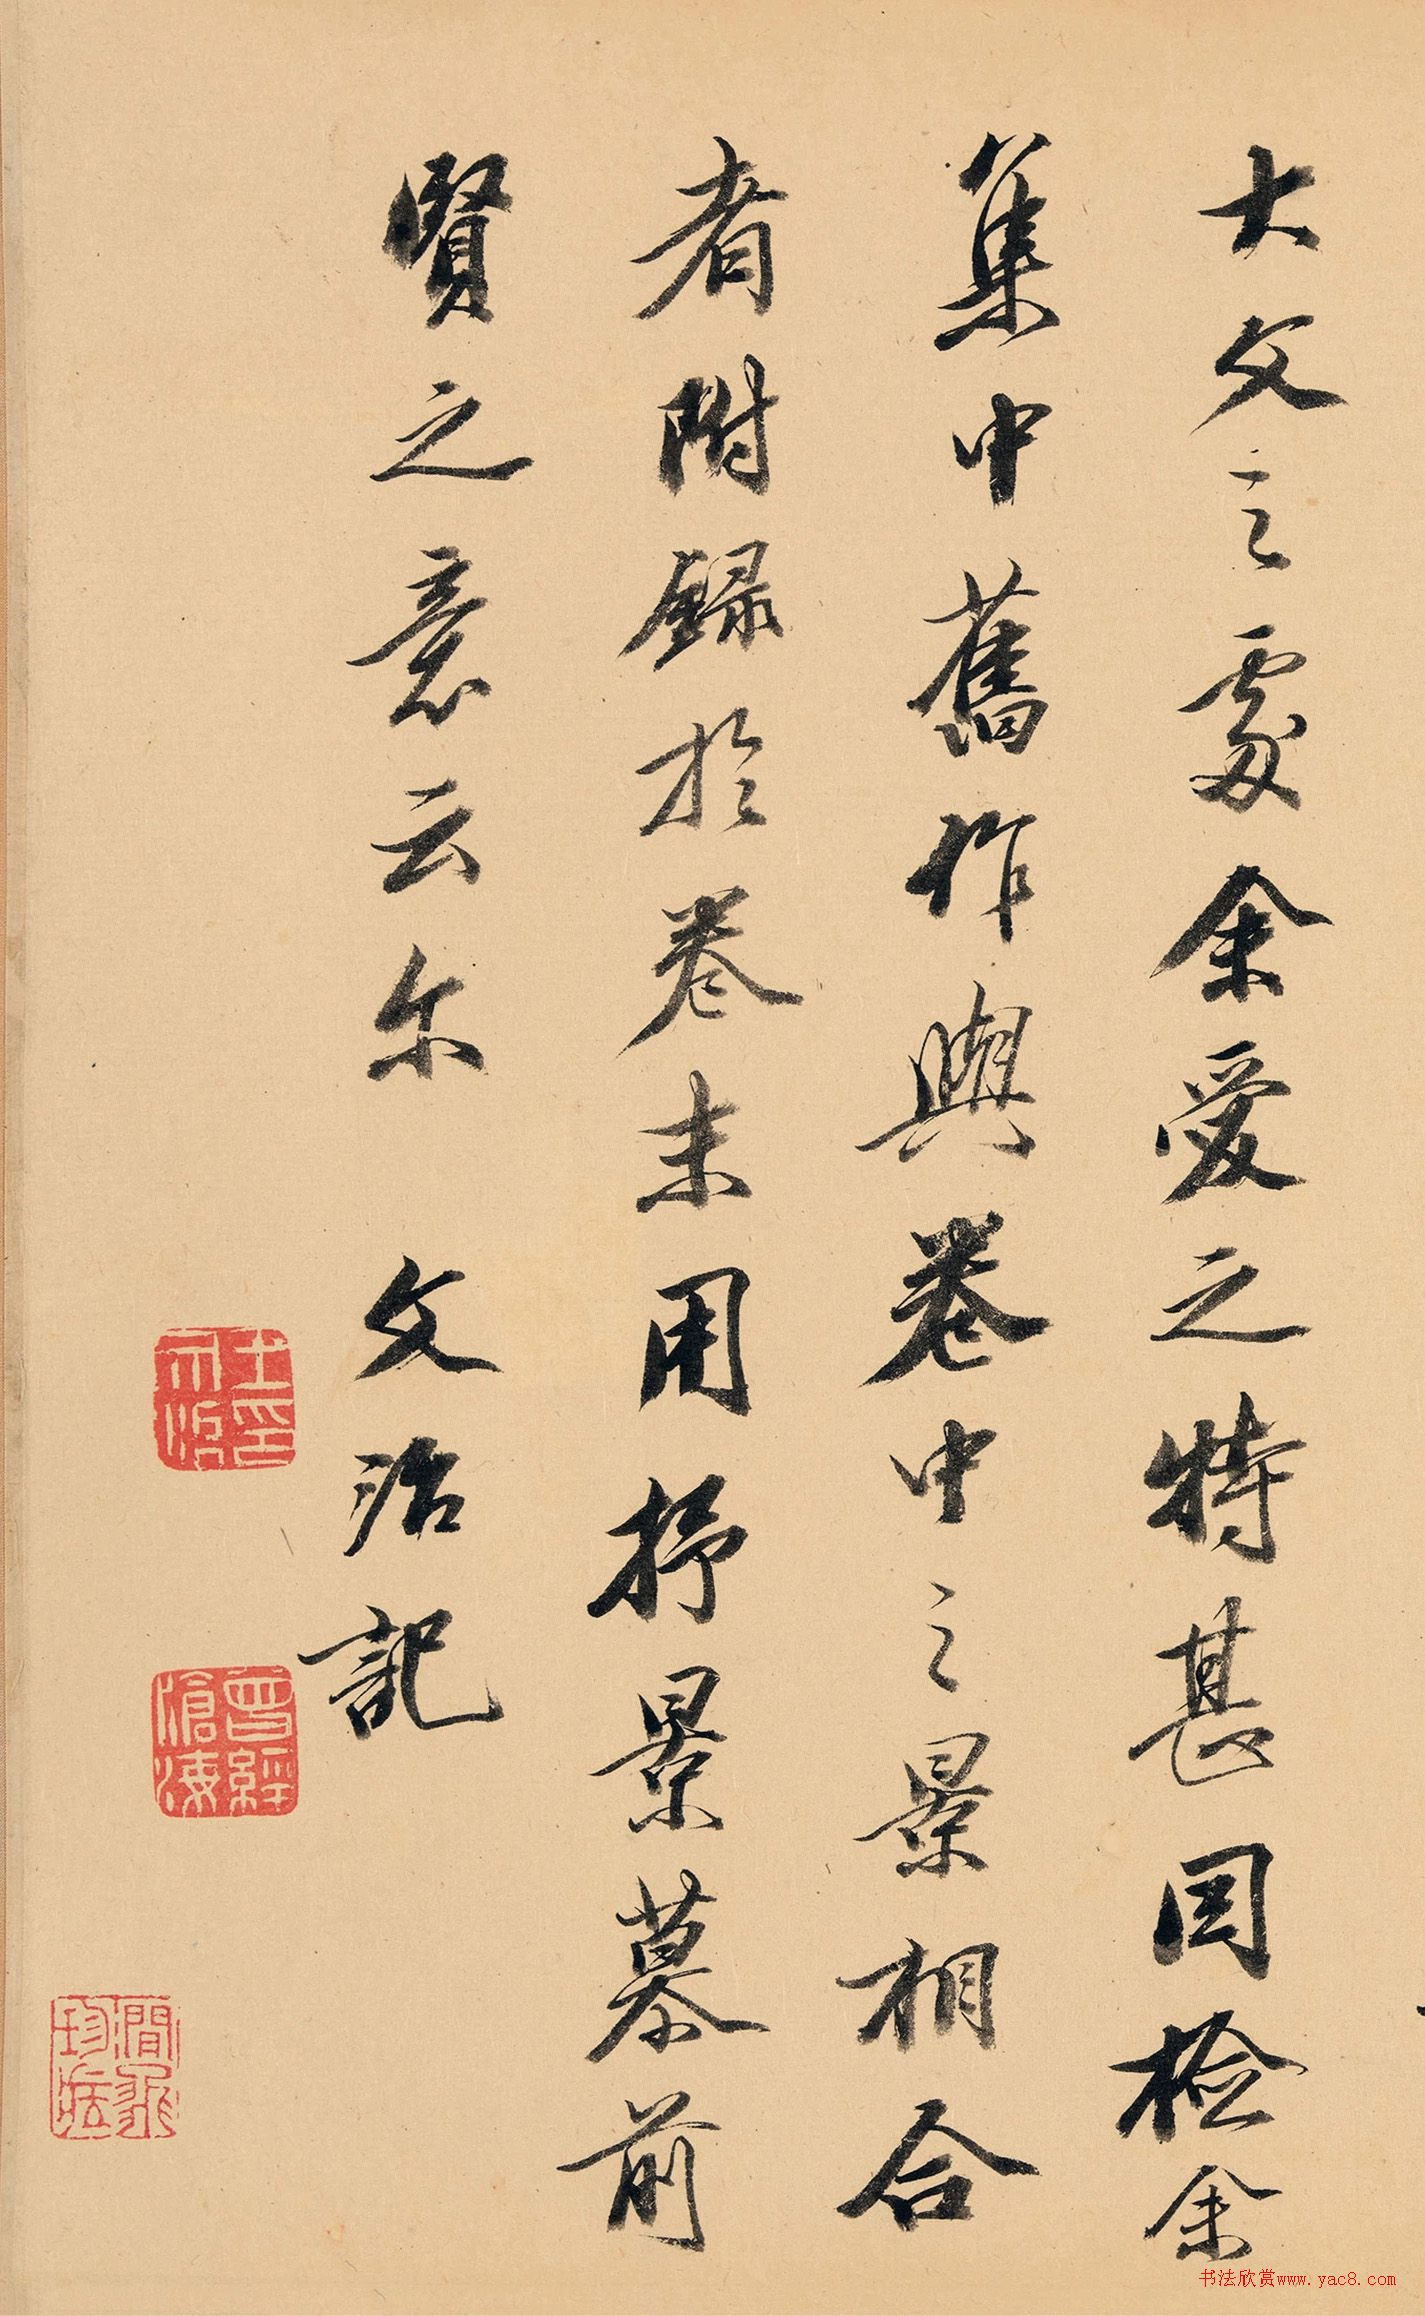 大文之處余愛之特甚因檢余
集中舊作與卷中之景相合
者附錄於卷末用抒景慕前
賢之意云尔 文治記
王文治印
曾經滄海
珍藏
书法欣赏www.yac8.com